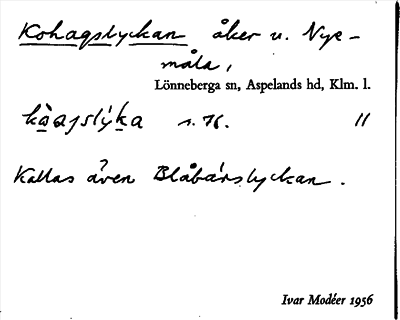 Kohagslyckan åker u. Nye-
måla,
Lönneberga sn, Aspelands hd, Klm. l.
s. 76. //
Kallas även Blåbärslyckan.
Ivar Modéer 1956